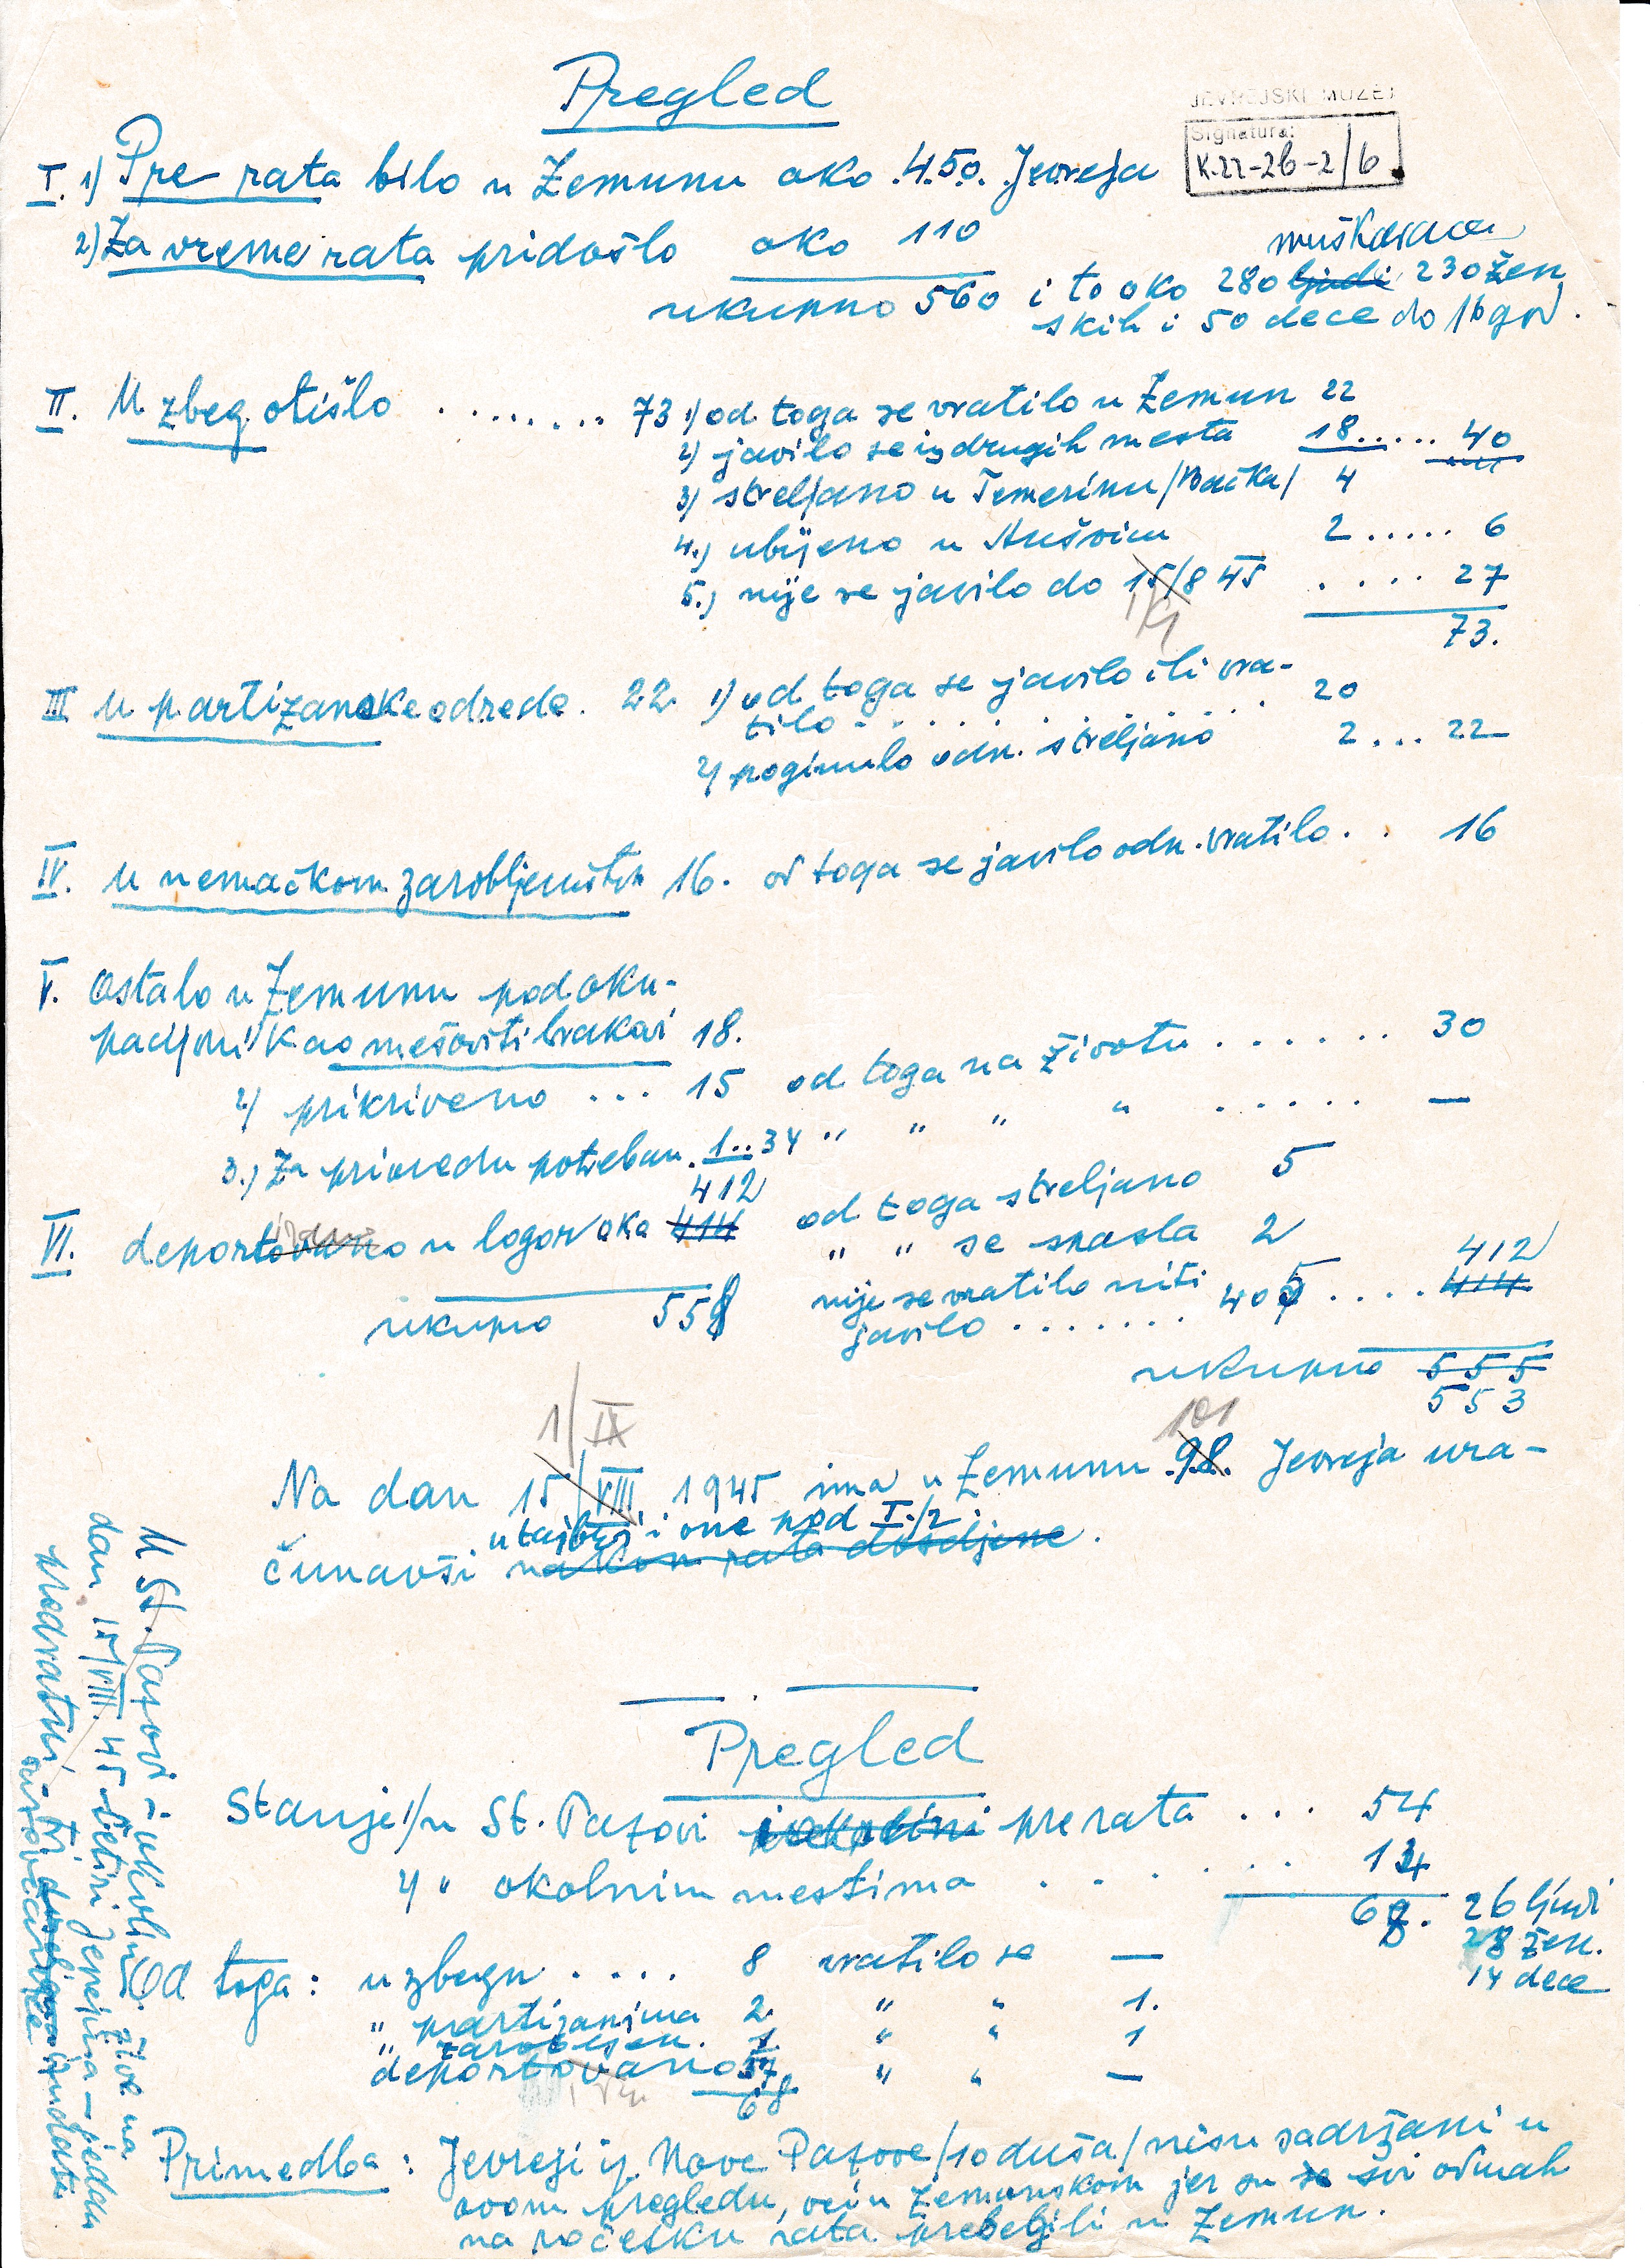 Pregled
JEVREJSKI MUZEJ
Signatura:
K.22-2b-2/6
I. 1) Pre rata bilo u Zemunu oko .450. Jevreja
2) Za vreme rata pridošlo oko 110
muškaraca
ukupno 560 i to oko 280 ljudi 230 žen
skih i 50 dece do 16 god.
II. U zbeg otišlo ........ 73 1) od toga se vratilo u Zemun 22
2) javilo se iz drugih mesta 18..... 40
3) streljano u Temerinu /Bačka/ 4
4.) ubijeno u Aušvicu 2..... 6
5.) nije se javilo do 15/8 45 .... 27
1/9
73.
III u partizanske odrede. 22. 1) od toga se javilo ili vra-
tilo .......... 20
2) poginulo odn. streljano 2... 22
IV. u nemačkom zarobljeništvu 16. od toga se javilo odn. vratilo.. 16
V. Ostalo u Zemunu pod oku-
pacijom 1) kao mešoviti brakovi 18.
2) prikriveno ... 15 od toga na životu ....... 30
3.) Za privredu potreban. 1.. 34 " " " " ...... —
412
VI. deportovano u logor oko 414 od toga streljano 5
" " se spasla 2 412
nije se vratilo niti
javilo ....... 405 .... 414
ukupno 558
ukupno 555
553
1/IX
101
Na dan 15/VIII 1945 ima u Zemunu .98. Jevreja ura-
utajbeno i one pod I./2.
čunavši nakon rata doseljene.
Pregled
Stanje 1/u St. Pazovi i okolini pre rata ... 54
2) " okolnim mestima ...... 14
68. 26 ljudi
28 žen.
14 dece
Od toga: u zbegu .... 8 vratilo se —
" partizanima 2. " " 1.
" zarobljen. 1. " " 1
deportovano 57 " " —
68
Primedba: Jevreji iz Nove Pazove /10 duša/ nisu sadržani u
ovom pregledu, već u Zemunskom jer su se svi odmah
na početku rata preselili u Zemun.
U St. Pazovi i okolini žive na
dan 15/VIII. 45 četiri Jevrejina – jedan